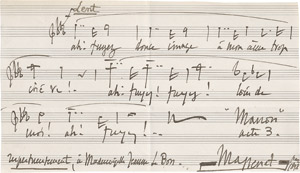 Lent
ah! fuyez douce image à mon âme trop
chère! ah! fuyez! fuyez! loin de
moi! ah! fuyez! "Manon"
acte 3.
à Mademoiselle Le Bon. Massenet